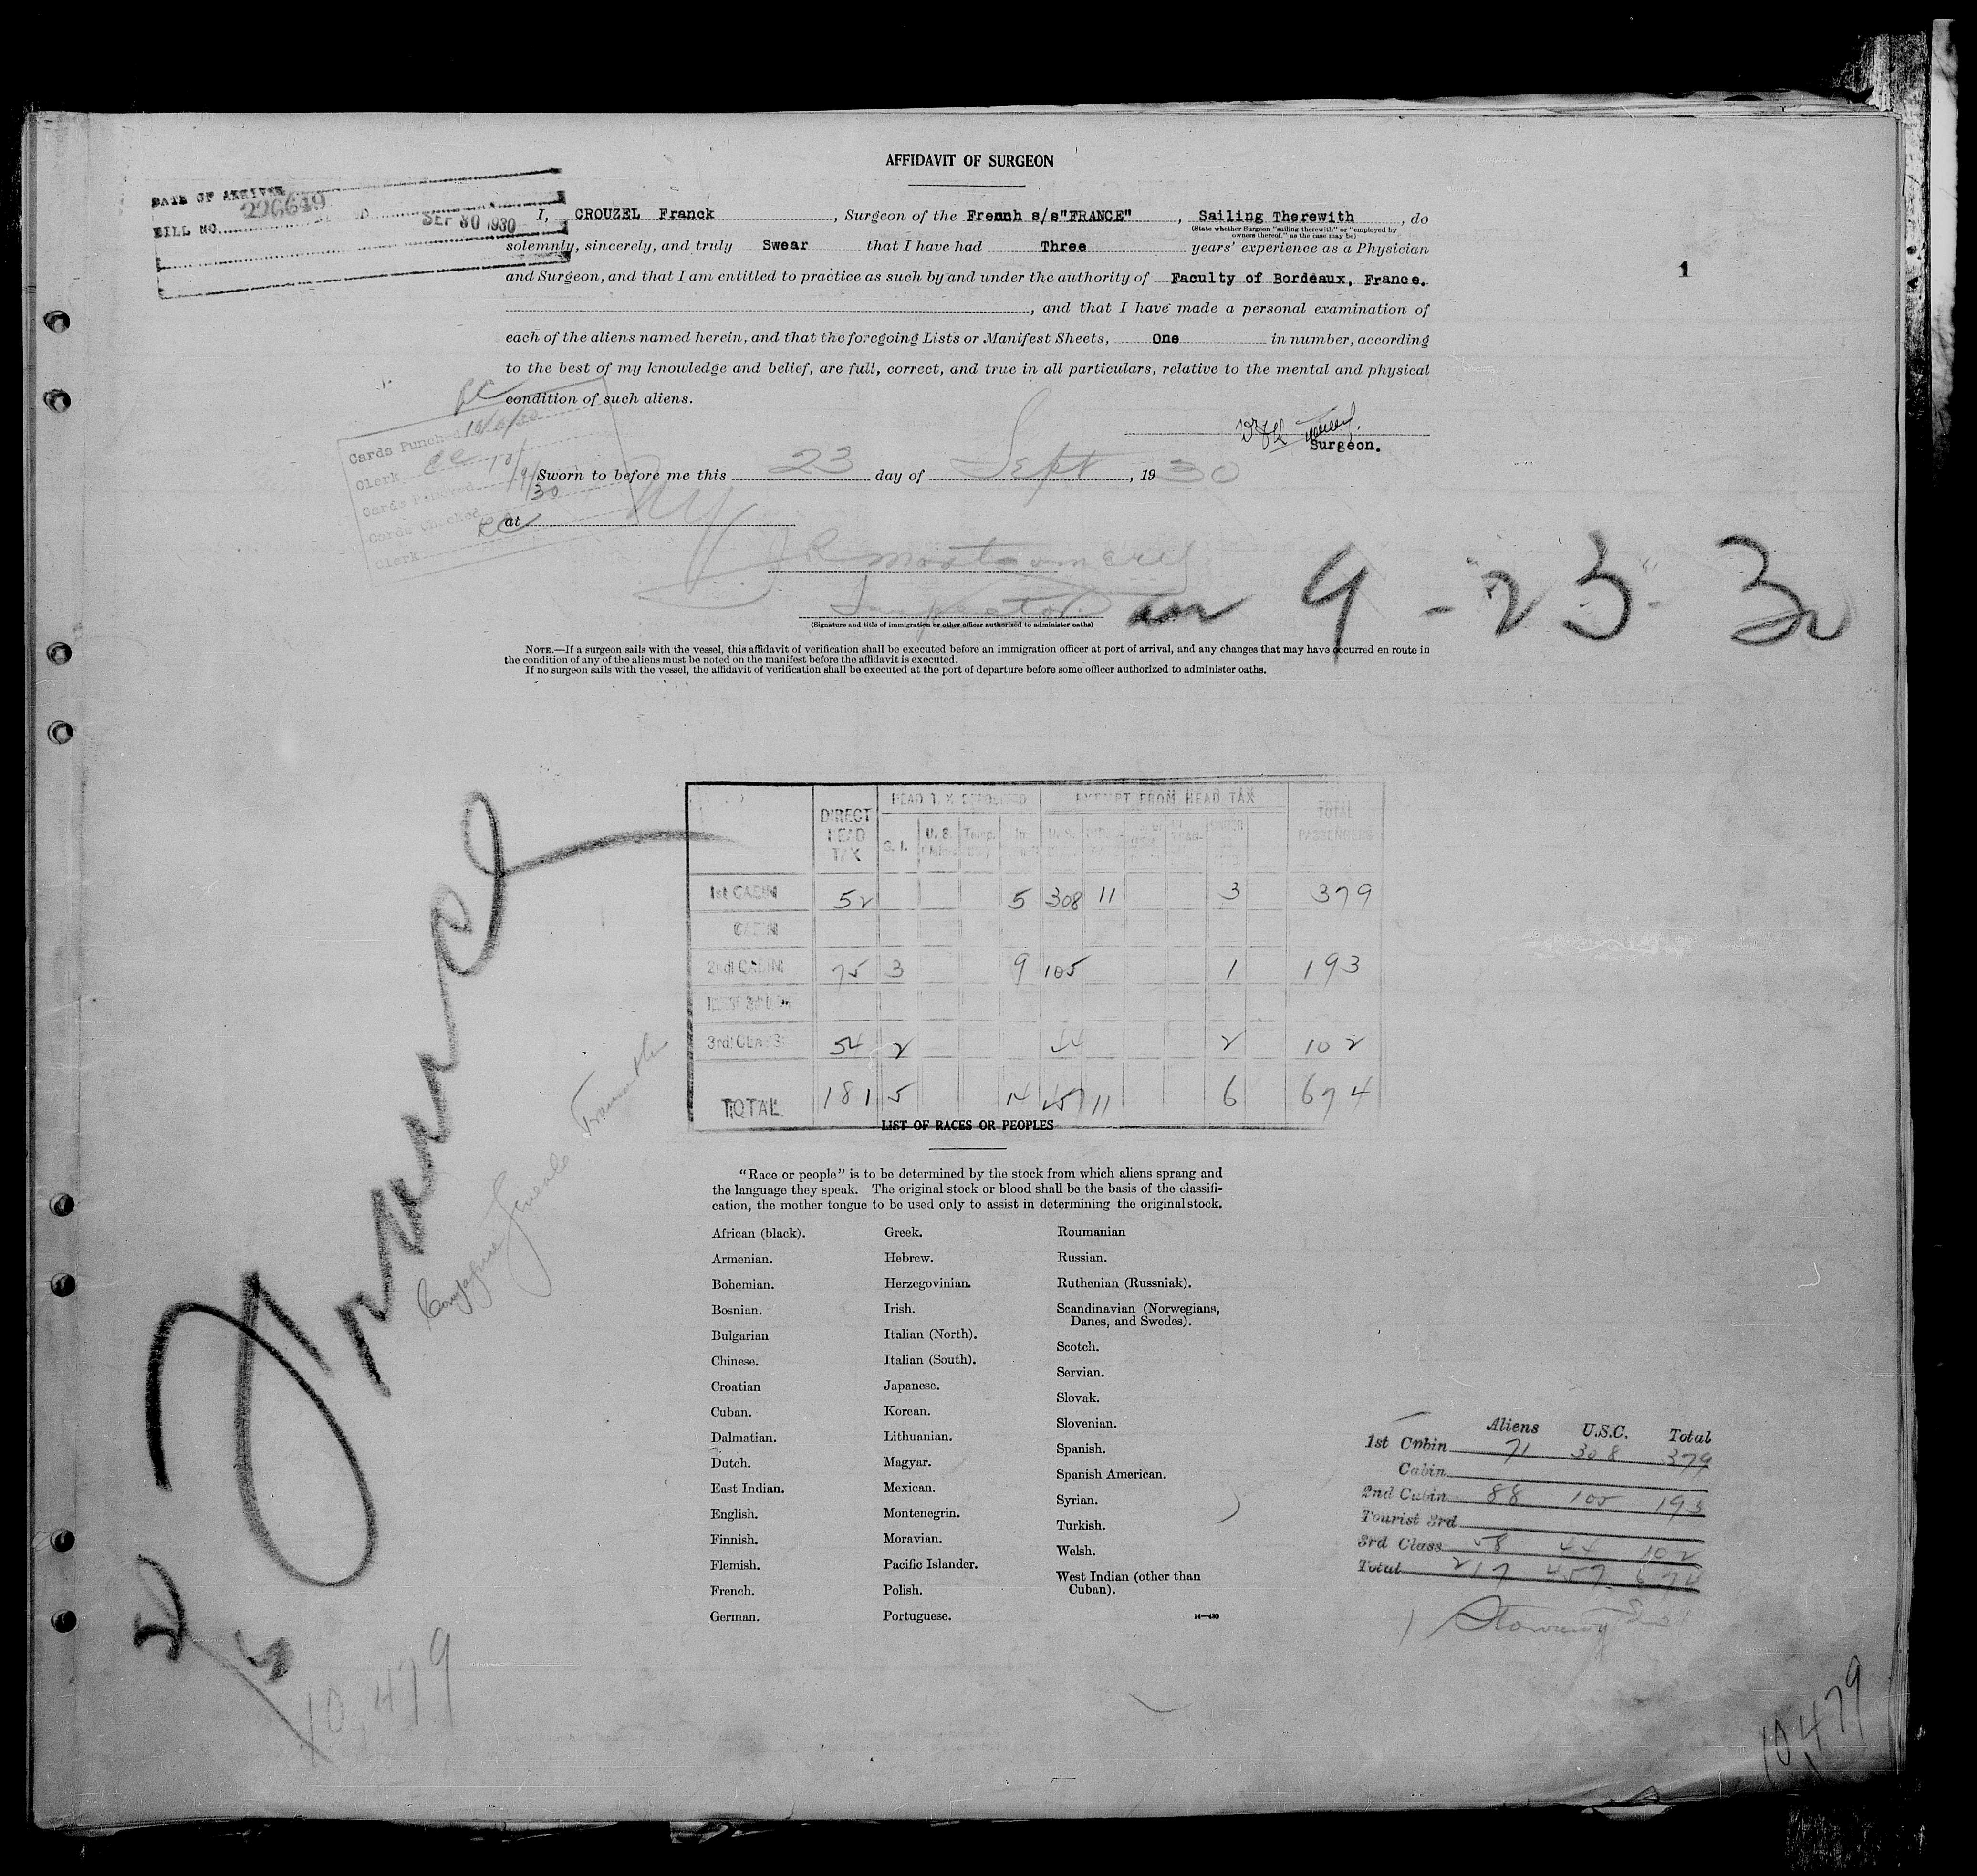 AFFIDAVIT OF SURGEON
DATE OF ARRIVAL
226649
BILL NO. SEP 30 1930
I, CROUZEL Franck, Surgeon of the Frennh s/s"FRANCE", Sailing Therewith, do
(State whether Surgeon "sailing therewith" or "employed by
owners thereof," as the case may be)
solemnly, sincerely, and truly Swear that I have had Three years' experience as a Physician
1
and Surgeon, and that I am entitled to practice as such by and under the authority of Faculty of Bordeaux, France.
, and that I have made a personal examination of
each of the aliens named herein, and that the foregoing Lists or Manifest Sheets, One in number, according
to the best of my knowledge and belief, are full, correct, and true in all particulars, relative to the mental and physical
condition of such aliens.
Surgeon.
Cards Punched
Clerk
Cards Checked
Clerk
Sworn to before me this 23 day of Sept, 1930
at NY
J R Montgomery
Inspector
(Signature and title of immigration or other officer authorized to administer oaths)
9-23-30
NOTE.—If a surgeon sails with the vessel, this affidavit of verification shall be executed before an immigration officer at port of arrival, and any changes that may have occurred en route in
the condition of any of the aliens must be noted on the manifest before the affidavit is executed.
If no surgeon sails with the vessel, the affidavit of verification shall be executed at the port of departure before some officer authorized to administer oaths.
DIRECT HEAD TAX HEAD TAX DEPOSITED EXEMPT FROM HEAD TAX TOTAL PASSENGERS
S. I. U. S. Temp. In U. S.
1st CABIN 52 5 308 11 3 379
CABIN
2nd CABIN 75 3 9 105 1 193
3rd CLASS 54 2 44 2 102
TOTAL 181 5 14 457 11 6 674
France
LIST OF RACES OR PEOPLES
"Race or people" is to be determined by the stock from which aliens sprang and
the language they speak. The original stock or blood shall be the basis of the classifi-
cation, the mother tongue to be used only to assist in determining the original stock.
African (black).
Armenian.
Bohemian.
Bosnian.
Bulgarian
Chinese.
Croatian
Cuban.
Dalmatian.
Dutch.
East Indian.
English.
Finnish.
Flemish.
French.
German.
Greek.
Hebrew.
Herzegovinian.
Irish.
Italian (North).
Italian (South).
Japanese.
Korean.
Lithuanian.
Magyar.
Mexican.
Montenegrin.
Moravian.
Pacific Islander.
Polish.
Portuguese.
Roumanian
Russian.
Ruthenian (Russniak).
Scandinavian (Norwegians,
Danes, and Swedes).
Scotch.
Servian.
Slovak.
Slovenian.
Spanish.
Spanish American.
Syrian.
Turkish.
Welsh.
West Indian (other than
Cuban).
14—430
Aliens U.S.C. Total
1st Cabin 71 308 379
Cabin
2nd Cabin 88 105 193
Tourist 3rd
3rd Class 58 44 102
Total 217 457 674
1 Stowaway
10,479
10,479